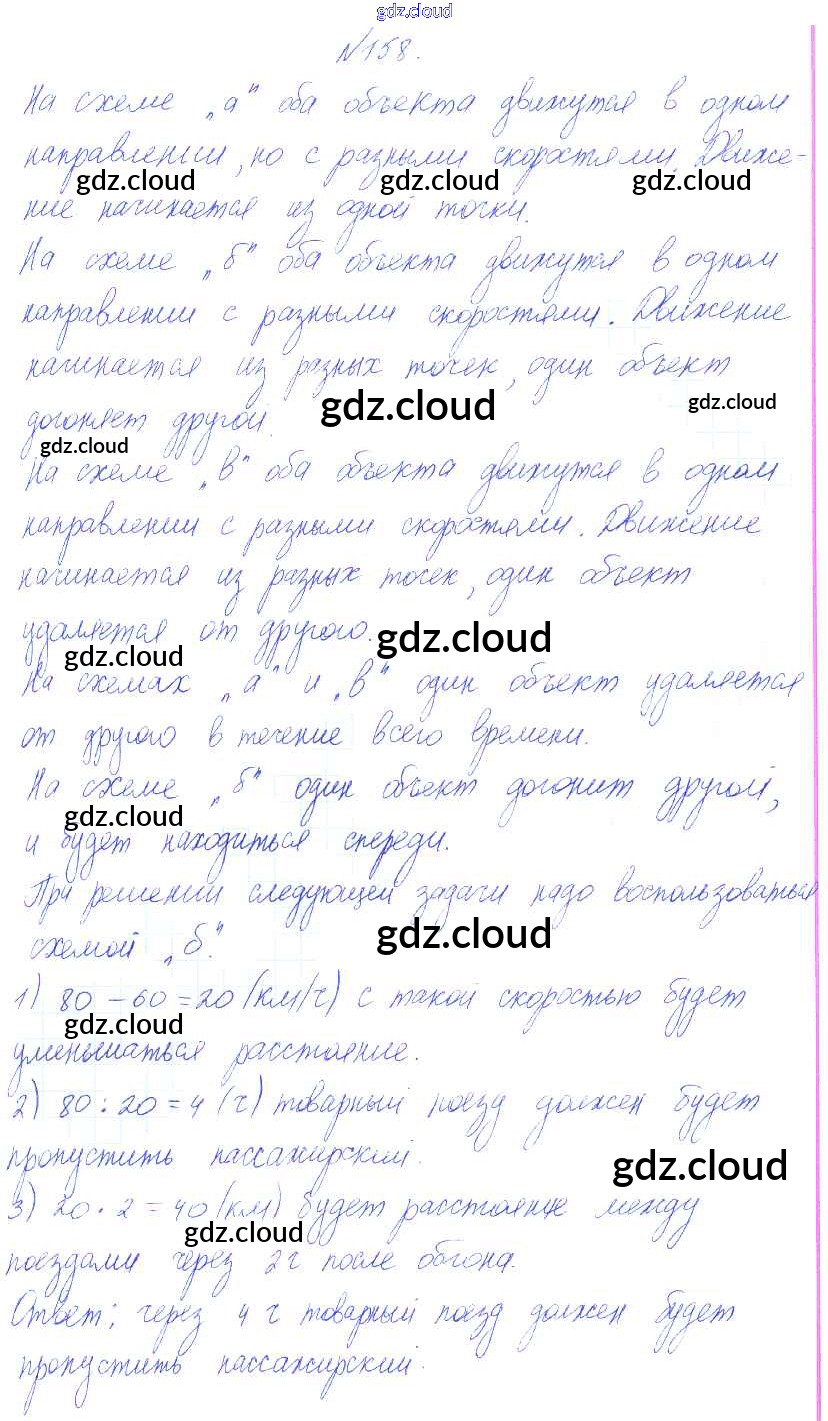 gdz.cloud
№158.
На схеме „а" оба объекта движутся в одном
направлении, но с разными скоростями. Движе-
gdz.cloud gdz.cloud gdz.cloud
ние начинается из одной точки.
На схеме „б" оба объекта движутся в одном
направлении с разными скоростями. Движение
начинается из разных точек, один объект
gdz.cloud gdz.cloud
догоняет другой.
gdz.cloud
На схеме „в" оба объекта движутся в одном
направлении с разными скоростями. Движение
начинается из разных точек, один объект
удаляется от другого.
gdz.cloud gdz.cloud
На схемах „а" и „в" один объект удаляется
от другого в течение всего времени.
На схеме „б" один объект догонит другой,
gdz.cloud
и будет находиться спереди.
При решении следующей задачи надо воспользоваться
схемой „б".
gdz.cloud
1) 80 - 60 = 20 (км/ч) с такой скоростью будет
gdz.cloud
уменьшаться расстояние.
2) 80 : 20 = 4 (ч) товарный поезд должен будет
пропустить пассажирский.
gdz.cloud
3) 20 · 2 = 40 (км) будет расстояние между
gdz.cloud
поездами через 2 ч после обгона.
Ответ: через 4 ч товарный поезд должен будет
пропустить пассажирский.